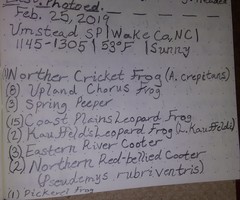 Photoed
Feb. 25, 2019
Umstead SP | Wake Co, NC |
1145-1305 | 53°F | Sunny
Norther Cricket Frog (A. crepitans)
(8) Upland Chorus Frog
(3) Spring Peeper
(15) Coast Plains Leopard Frog
(2) Kauffeld's Leopard Frog (L. Kauffeldi)
(3) Eastern River Cooter
(2) Northern Red-bellied Cooter
(Pseudemys rubriventris)
(1) Pickerel Frog